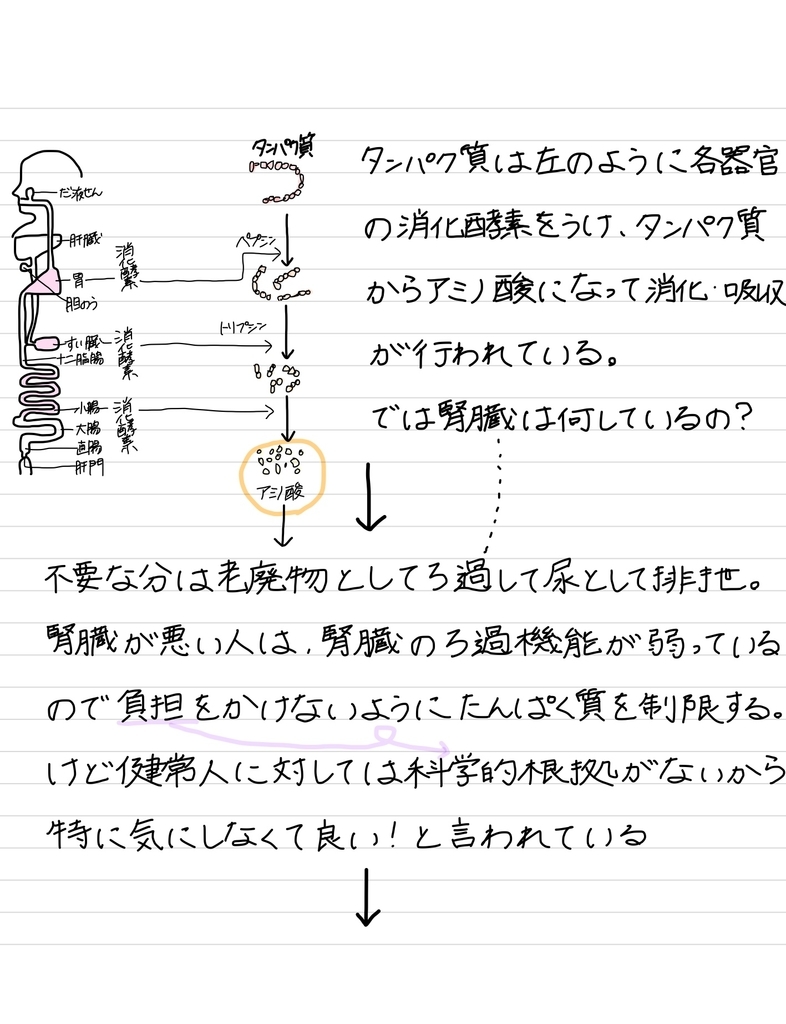 タンパク質
だ液せん
肝臓
胃
胆のう
すい臓
十二脂腸
小腸
大腸
直腸
肛門
消化酵素
消化酵素
消化酵素
ペプシン
トリプシン
アミノ酸
タンパク質は左のように各器官
の消化酵素をうけ、タンパク質
からアミノ酸になって消化・吸収
が行われている。
では腎臓は何しているの?
不要な分は老廃物としてろ過して尿として排せ。
腎臓が悪い人は、腎臓のろ過機能が弱っている
ので負担をかけないようにたんぱく質を制限する。
けど健常人に対しては科学的根拠がないから
特に気にしなくて良い!と言われている